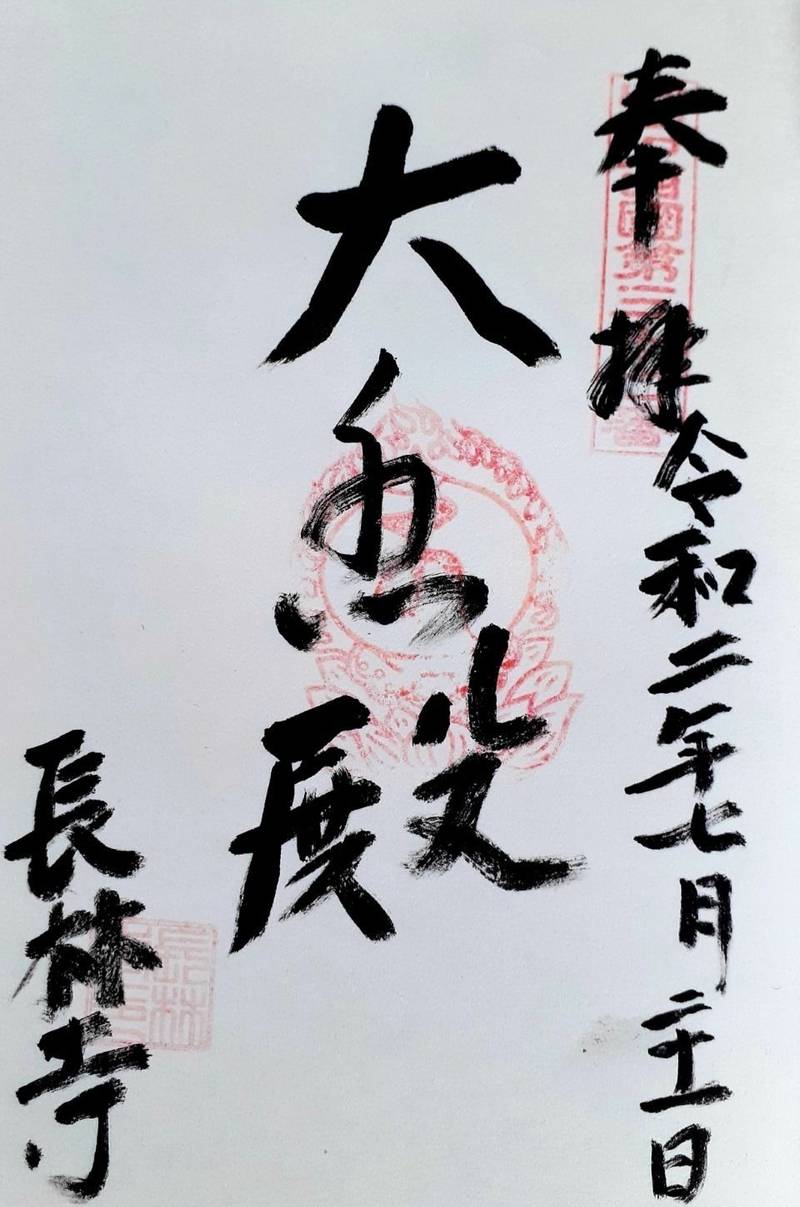 奉拝
令和二年七月二十一日
大悲殿
長林寺